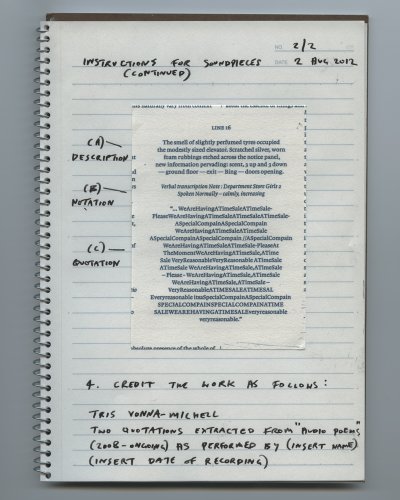 NO. 2/2
INSTRUCTIONS FOR SOUNDPIECES DATE 2 AUG 2012
(CONTINUED)
LINE 16
(A)—
DESCRIPTION
The smell of slightly perfumed tyres occupied
the modestly sized elevator. Scratched silver, worn
foam rubbings etched across the notice panel,
new information pervading: somx, 2 up and 3 down
— ground floor — exit — Bing — doors opening.
(B)—
NOTATION
Verbal transcription Note : Department Store Girls 2
Spoken Normally – calmly, increasing
(C)—
QUOTATION
"... WeAreHavingATimeSaleATimeSale-
PleaseWeAreHavingATimeSaleATimeSale-
WeAreHavingATimeSaleATimeSale
ASpecialCompainASpecialCompain //ASpecialCompain
WeAreHavingATimeSaleATimeSale-PleaseAt
TheMomentWeAreHavingATimeSale,ATime
Sale VeryReasonableVeryReasonable ATimeSale
ATimeSale WeAreHavingATimeSale,ATimeSale
– Please - WeAreHavingATimeSale,ATimeSale
WeAreHavingATimeSale,ATimeSale—
VeryReasonableATIMESALEATIMESAL
Everyreasonable itssSpecialCompainASpecialCompain
SPECIALCOMPAINSPECIALCOMPAINATIME
SALEWEAREHAVINGATIMESALEveryreasonable
veryreasonable."
absolute presence of the whole of
4. CREDIT THE WORK AS FOLLOWS:
TRIS VONNA-MICHELL
TWO QUOTATIONS EXTRACTED FROM "AUDIO POEMS"
(2008-ONGOING) AS PERFORMED BY (INSERT NAME)
(INSERT DATE OF RECORDING)